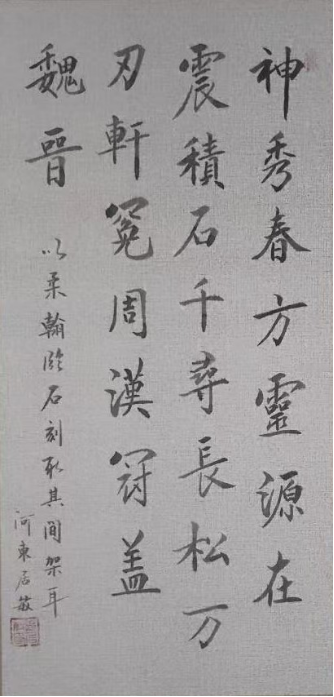 神秀春方靈源在
震積石千尋長松万
刃軒冕周漢冠盖
魏晉
以柔翰臨石刻取其間架耳
河東居敏